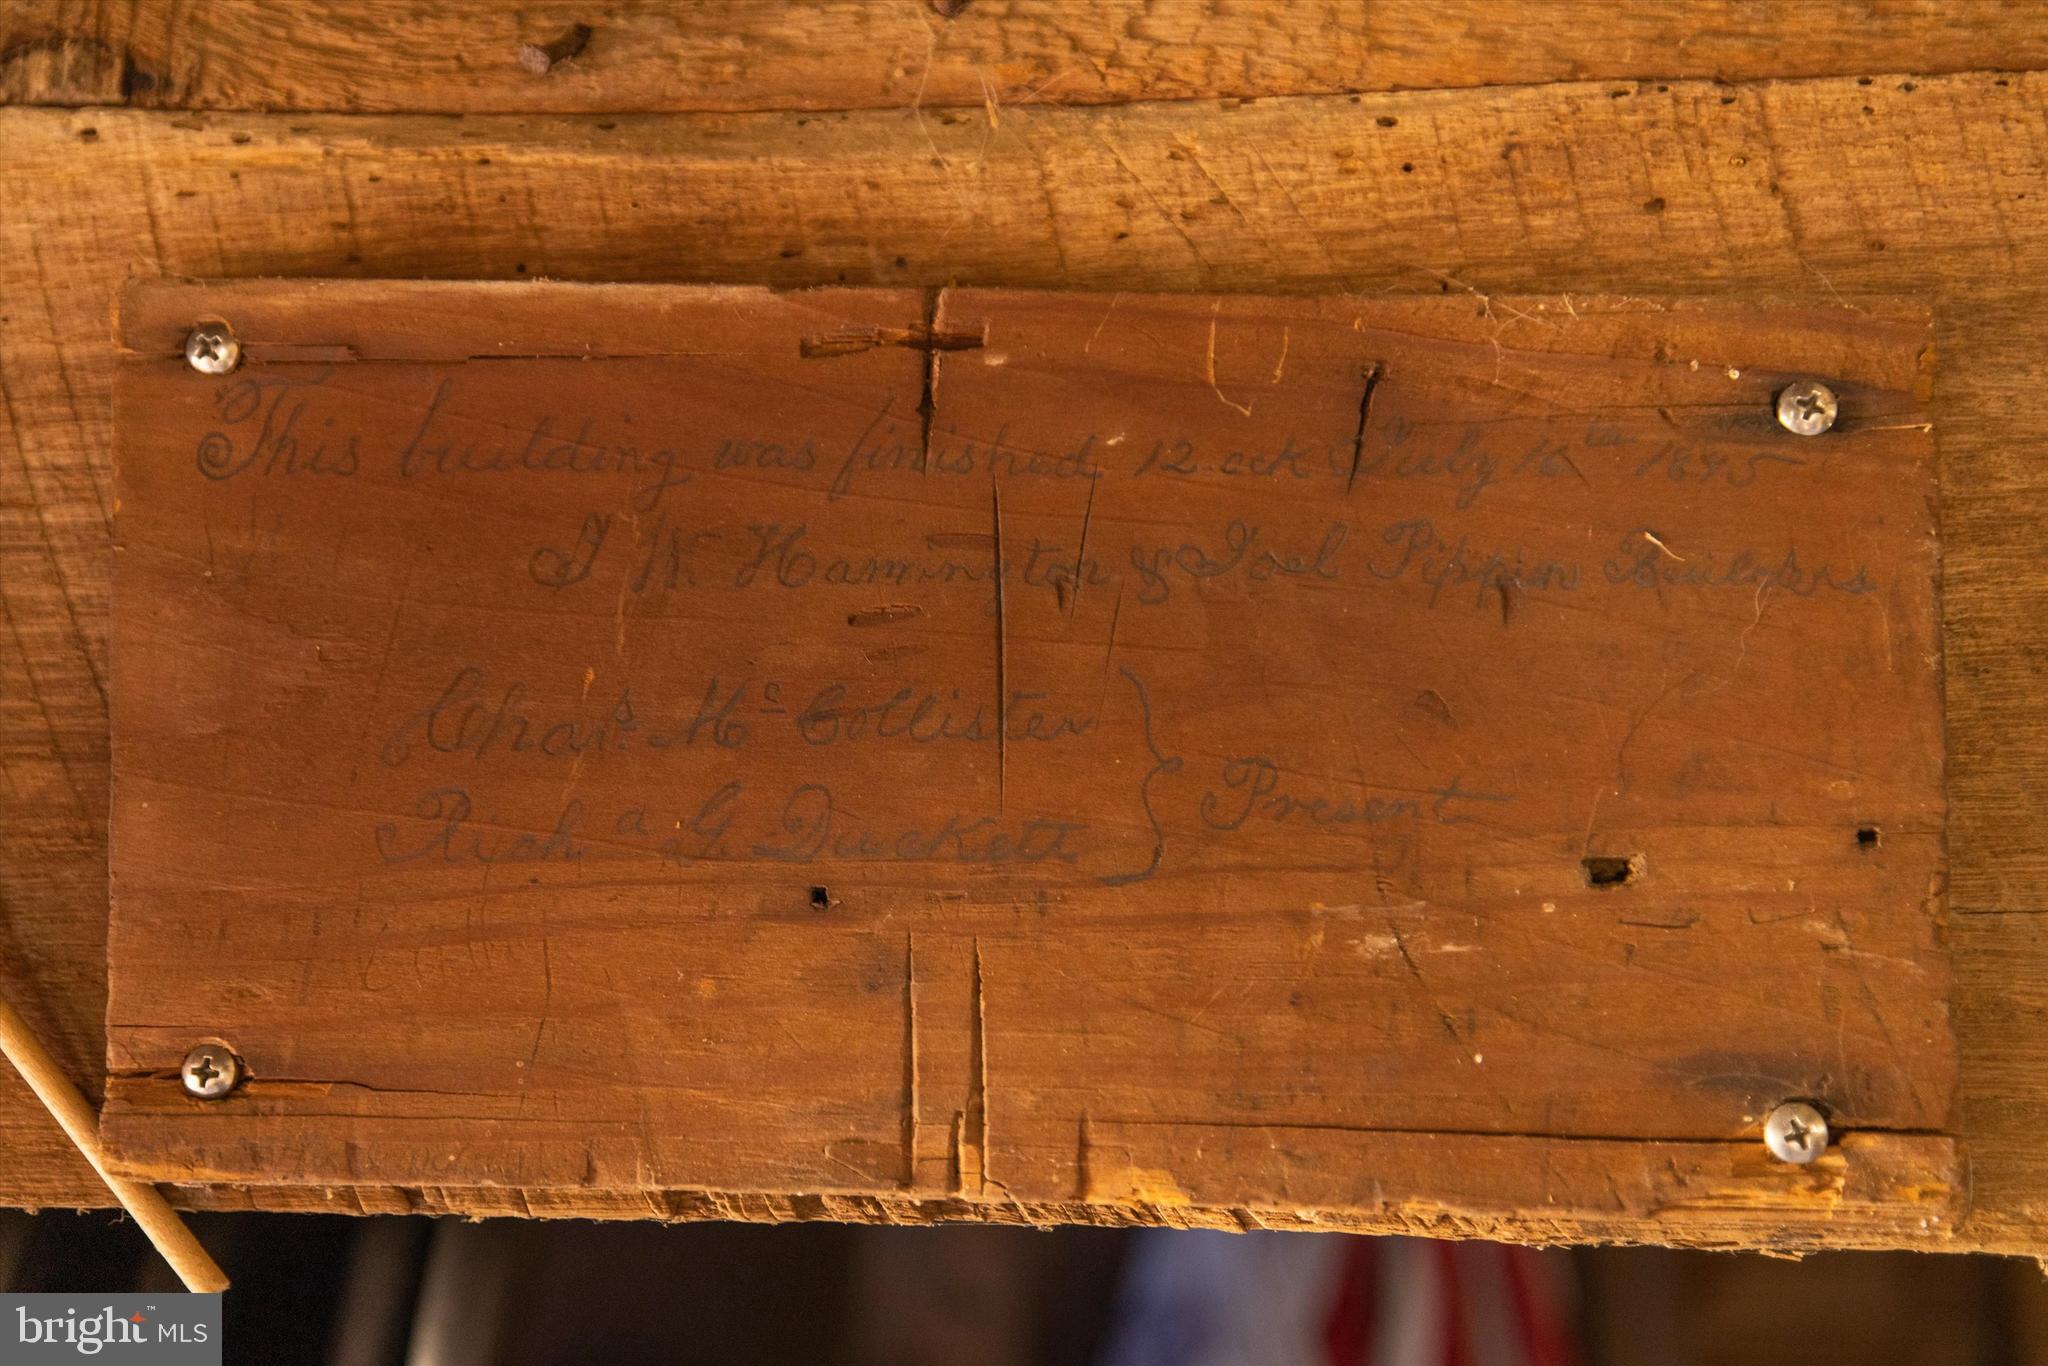 This building was finished 12 ock July 16th 1895
J W. Harrington & Joel Pippin Builders
Chas. Mc Collister
Richd G. Duckett } Present
bright MLS